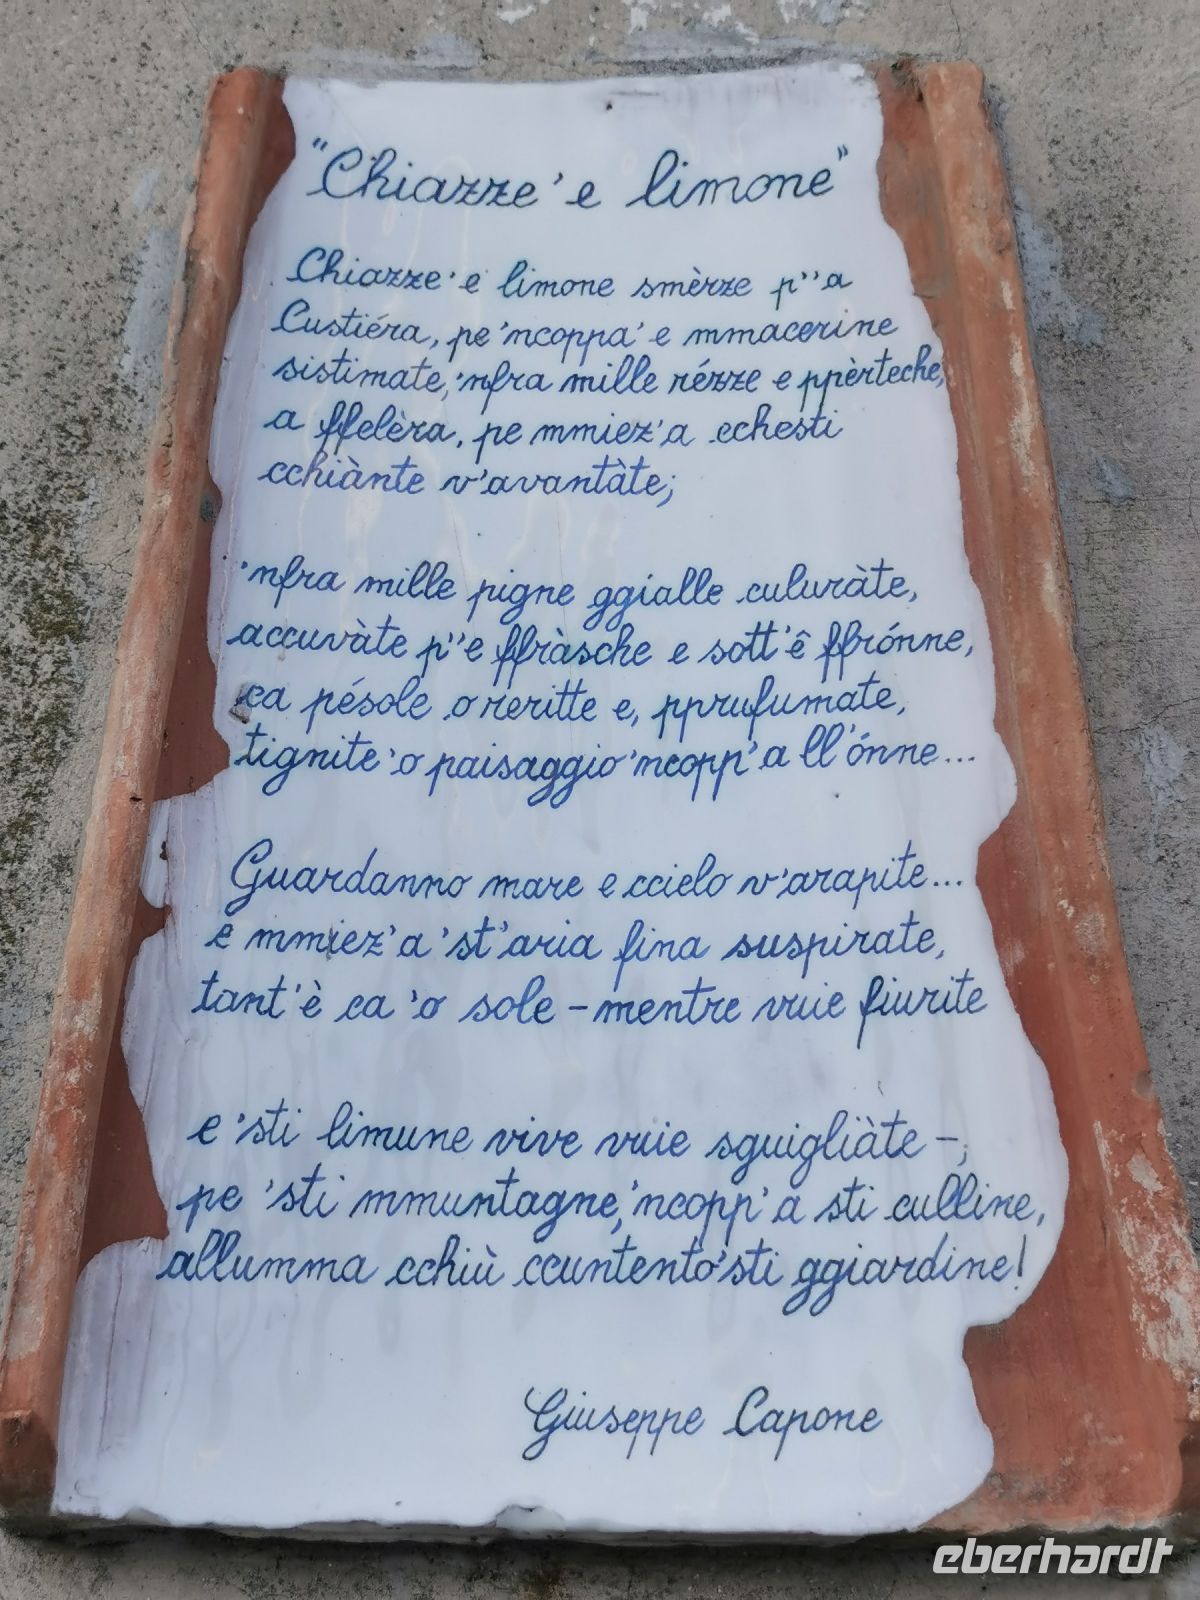 "Chiazze 'e limone"
Chiazze 'e limone smèrze p''a
Custiéra, pe 'ncoppa 'e mmacerine
sistimate, 'nfra mille rézze e ppèrteche,
a ffelèra, pe mmiez'a cchesti
cchiànte v'avantàte;
'nfra mille pigne ggialle culuràte,
accuvàte p''e ffràsche e sott'ê ffrónne,
ca pésole o reritte e, pprufumate,
tignite 'o paisaggio 'ncopp'a ll'ónne...
Guardanno mare e ccielo v'arapite...
e mmiez'a 'st'aria fina suspirate,
tant'è ca 'o sole - mentre vuie fiurite
e 'sti limune vive vuie sguigliàte -,
pe 'sti mmuntagne, 'ncopp'a sti culline,
allumma cchiù ccuntento 'sti ggiardine!
Giuseppe Capone
eberhardt